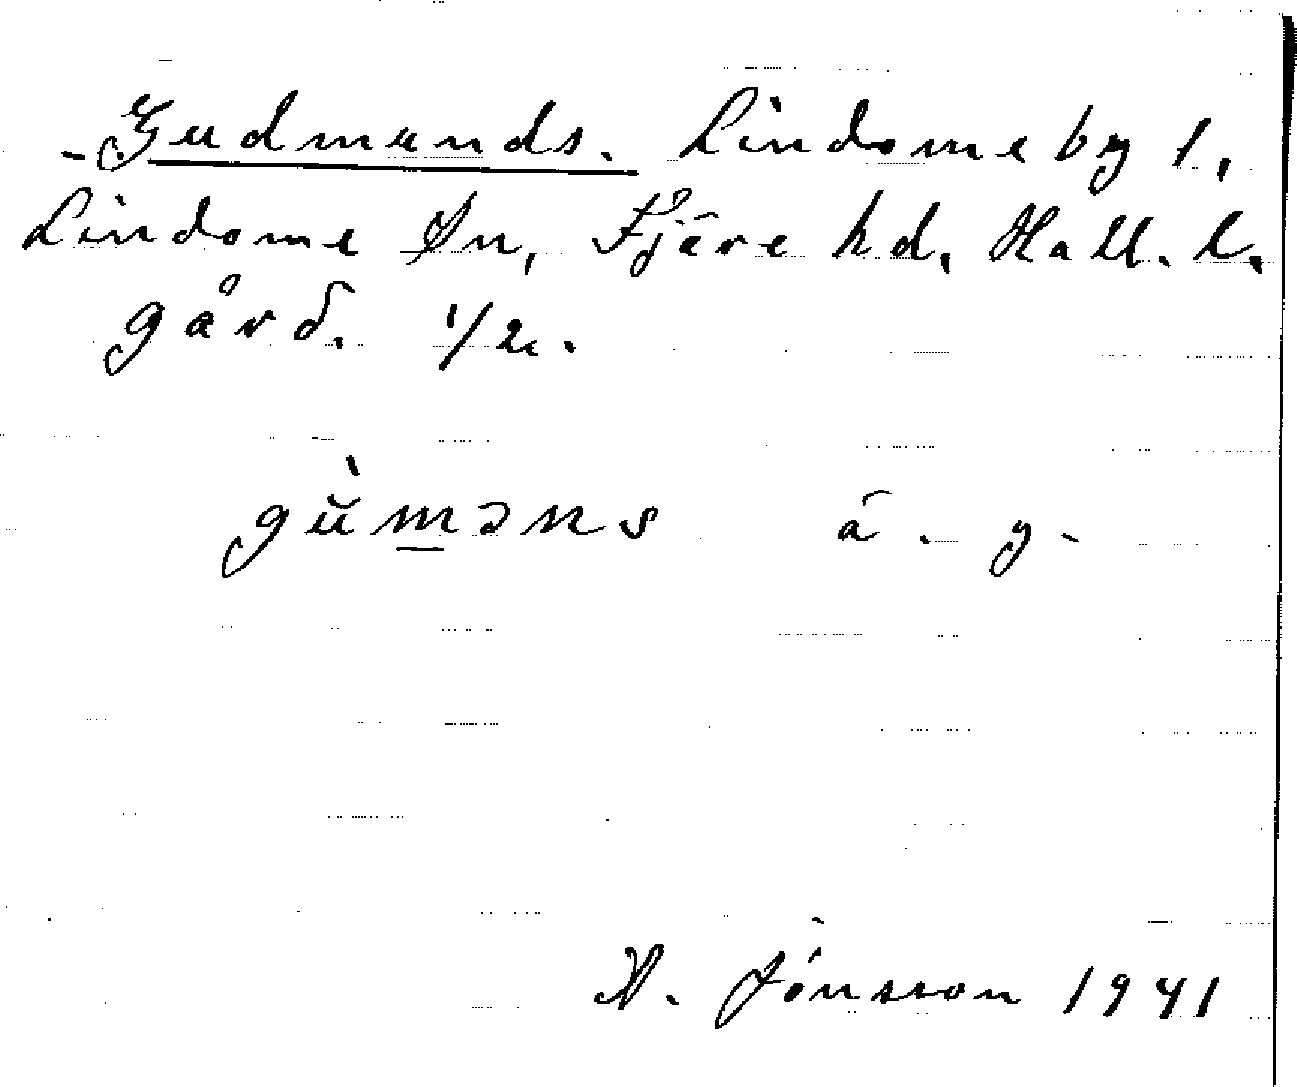 Gudmunds. Lindome by 1,
Lindome sn, Fjäre hd, Hall. l.
gård. 1/2.
gùməns ä. g.
A. Jónsson 1941